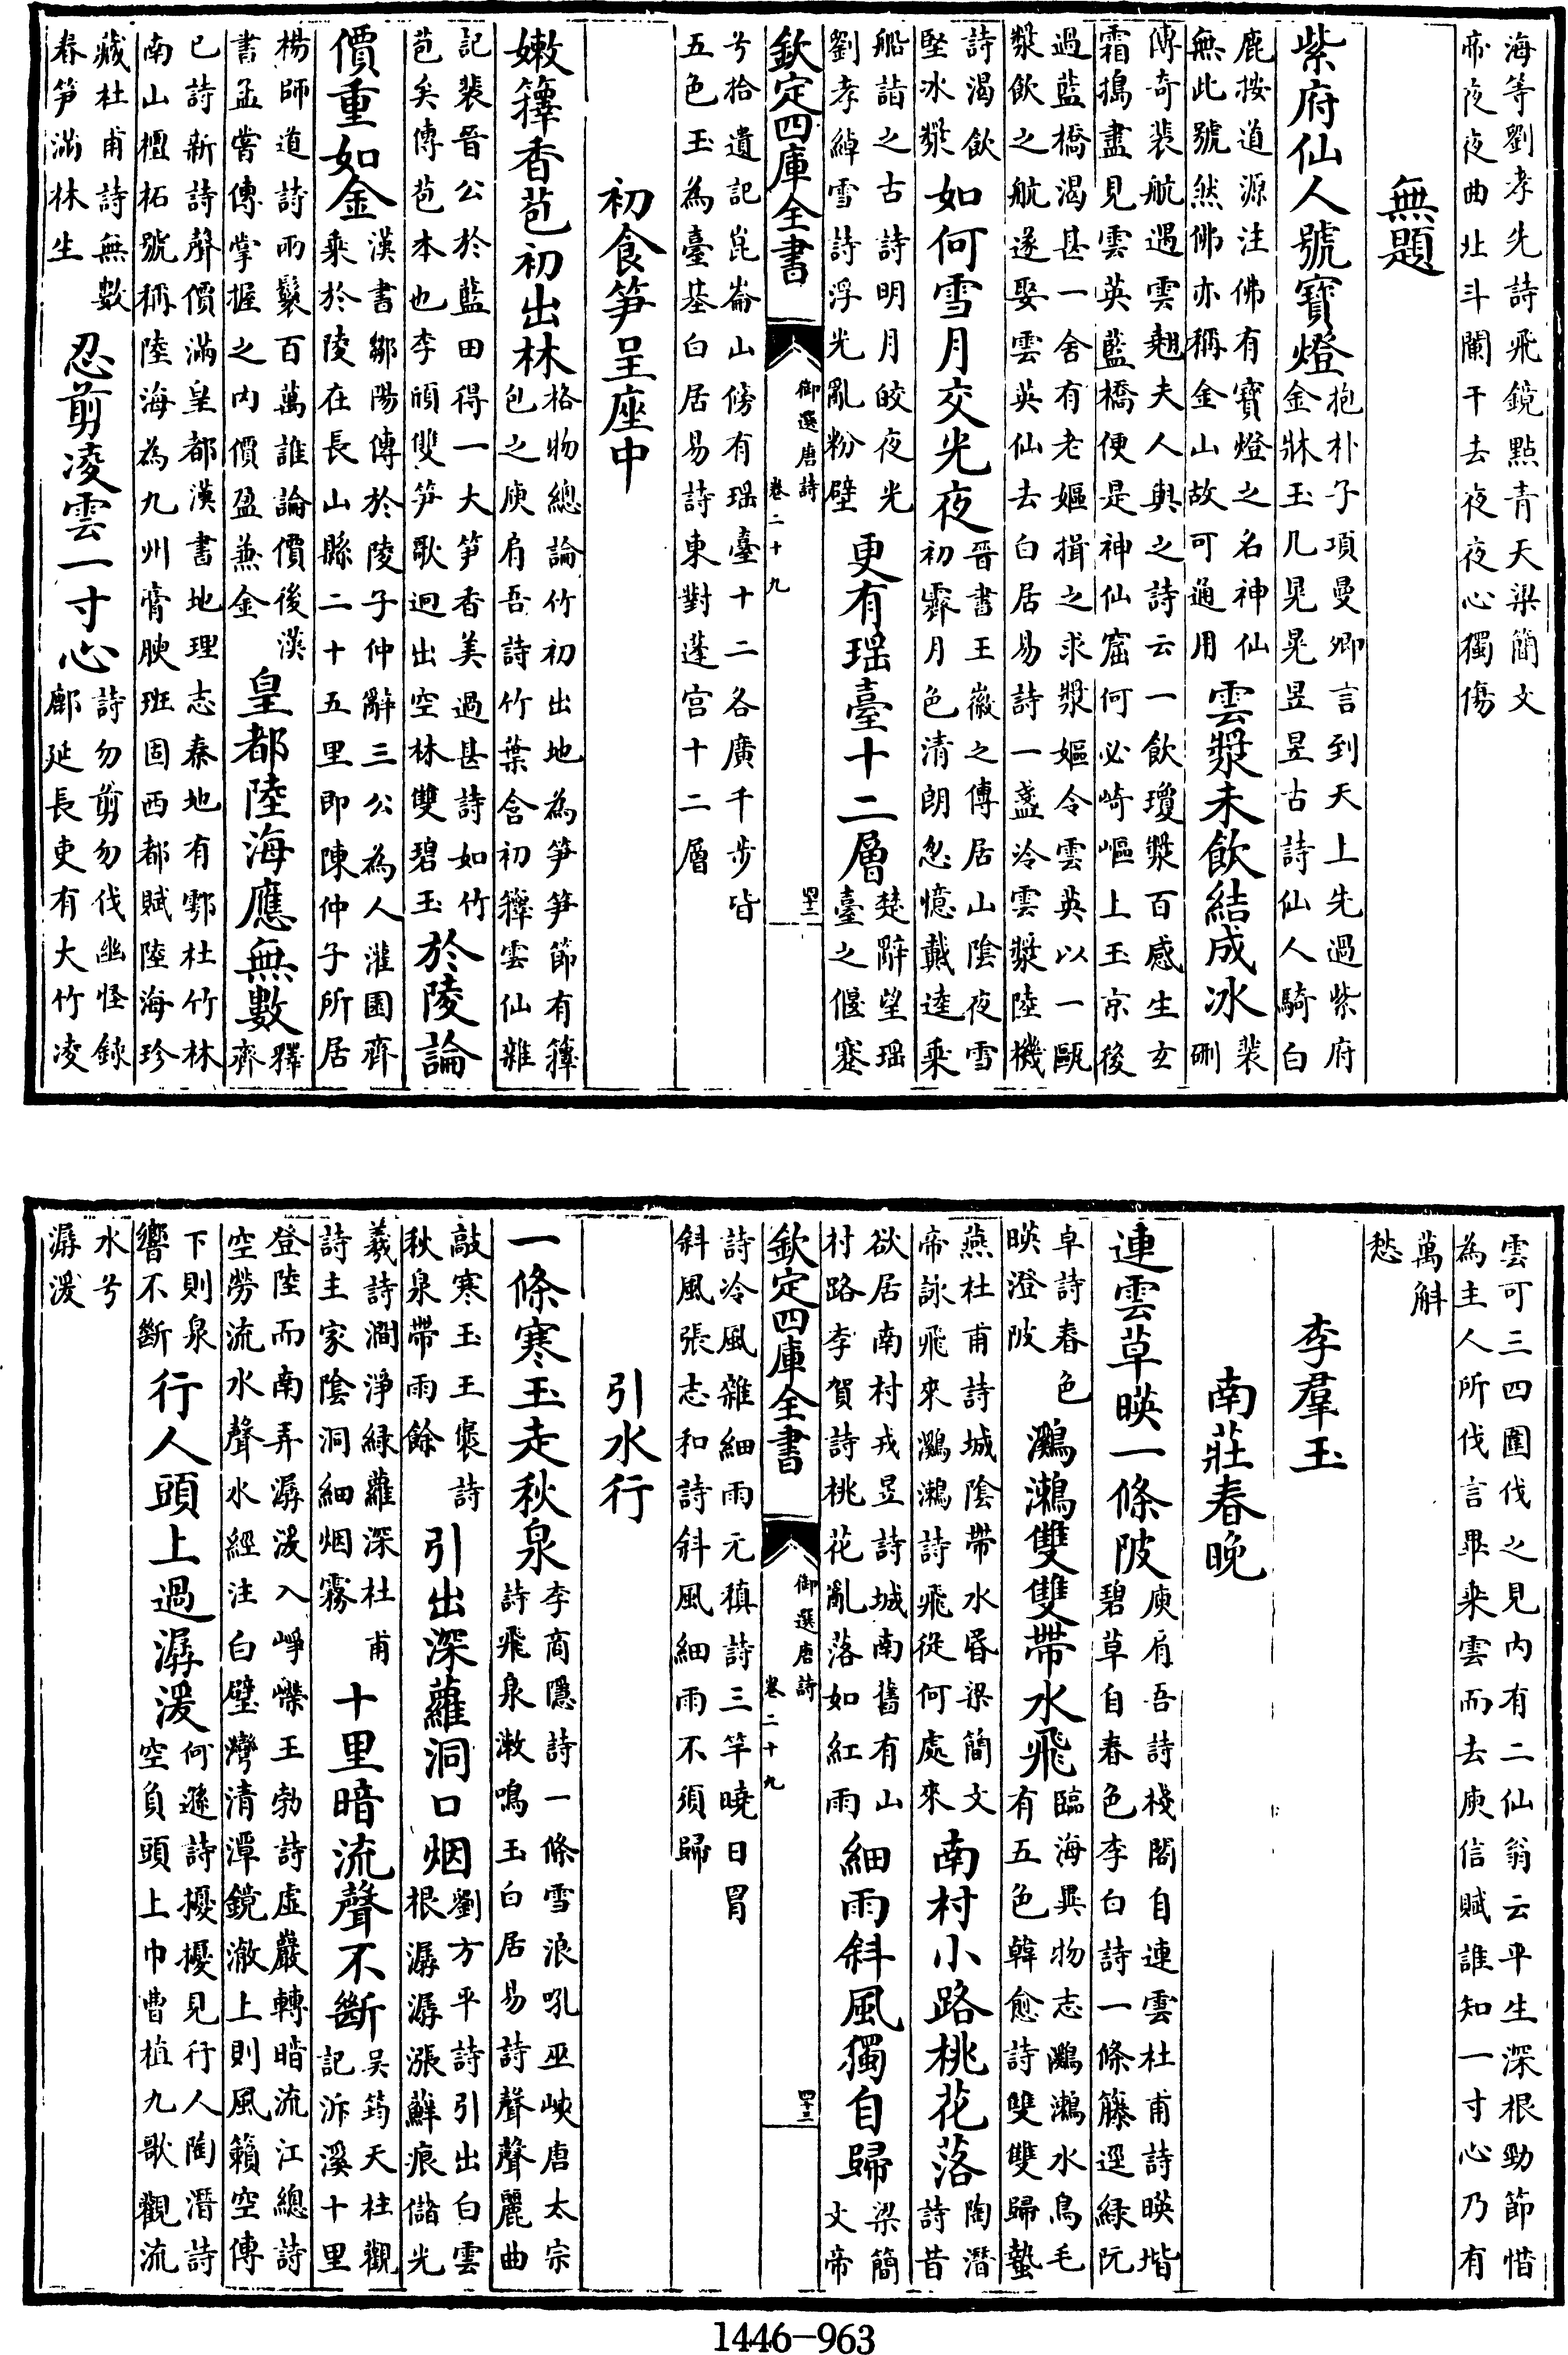 海等劉孝先詩飛鏡點青天梁簡文
帝夜夜曲北斗闌干去夜夜心獨傷
無題
紫府仙人號寳燈
抱朴子項曼卿言到天上先過紫府
金牀玉几晃晃昱昱古詩仙人騎白
鹿按道源注佛有寳燈之名神仙
無此號然佛亦稱金山故可通用
雲漿未飲結成冰
裴
硎
傳奇裴航遇雲翹夫人與之詩云一飲瓊漿百感生玄
霜搗盡見雲英藍橋便是神仙窟何必崎嶇上玉京後
過藍橋渴甚一舍有老嫗揖之求漿嫗令雲英以一甌
漿飲之航遂娶雲英仙去白居易詩一盞冷雲漿陸機
詩渴飲
堅冰漿
如何雪月交光夜
晉書王徽之傳居山陰夜雪
初霽月色清朗忽憶戴逵乘
船詣之古詩明月皎夜光
劉孝綽雪詩浮光亂粉壁
更有瑶臺十二層
楚辭望瑶
臺之偃蹇
欽定四庫全書
御選唐詩
卷二十九
四十二
兮拾遺記崑崙山傍有瑶臺十二各廣千步皆
五色玉為臺基白居易詩東對蓬宫十二層
初食笋呈座中
嫩籜香苞初出林
格物總論竹初出地為笋笋節有籜
包之庾肩吾詩竹葉含初籜雲仙雜
記裴晉公於藍田得一大笋香美過甚詩如竹
苞矣傳苞本也李頎雙笋歌迥出空林雙碧玉
於陵論
價重如金
漢書鄒陽傳於陵子仲辭三公為人灌園齊
乘於陵在長山縣二十五里即陳仲子所居
楊師道詩雨鬟百萬誰論價後漢
書孟嘗傳掌握之内價盈兼金
皇都陸海應無數
釋
齊
已詩新詩聲價滿皇都漢書地理志秦地有鄠杜竹林
南山檀柘號稱陸海為九州膏腴班固西都賦陸海珍
藏杜甫詩無數
春笋滿林生
忍剪凌雲一寸心
詩勿剪勿伐幽怪録
鄜延長吏有大竹凌
雲可三四圍伐之見内有二仙翁云平生深根勁節惜
為主人所伐言畢乘雲而去庾信賦誰知一寸心乃有
萬斛
愁
李羣玉
南莊春晚
連雲草暎一條陂
庾肩吾詩棧閣自連雲杜甫詩暎堦
碧草自春色李白詩一條籐逕緑阮
卓詩春色
暎澄陂
鸂鷘雙雙帶水飛
臨海異物志鸂鷘水鳥毛
有五色韓愈詩雙雙歸蟄
燕杜甫詩城隂帶水昏梁簡文
帝詠飛來鸂鷘詩飛從何處來
南村小路桃花落
陶潛
詩昔
欲居南村戎昱詩城南舊有山
村路李賀詩桃花亂落如紅雨
細雨斜風獨自歸
梁簡
文帝
欽定四庫全書
御選唐詩
卷二十九
四十三
詩冷風雜細雨元稹詩三竿曉日冐
斜風張志和詩斜風細雨不須歸
引水行
一條寒玉走秋泉
李商隱詩一條雪浪吼巫峽唐太宗
詩飛泉漱鳴玉白居易詩聲聲麗曲
敲寒玉王褒詩
秋泉帶雨餘
引出深蘿洞口烟
劉方平詩引出白雲
根潺潺漲蘚痕儲光
羲詩澗淨緑蘿深杜甫
詩主家隂洞細烟霧
十里暗流聲不斷
吴筠天柱觀
記泝溪十里
登陸而南弄潺湲入崢嶸王勃詩虚巖轉暗流江總詩
空勞流水聲水經注白璧灣清潭鏡澈上則風籟空傳
下則泉
響不斷
行人頭上過潺湲
何遜詩擾擾見行人陶潛詩
空負頭上巾曹植九歌觀流
水兮
潺湲
1446-963